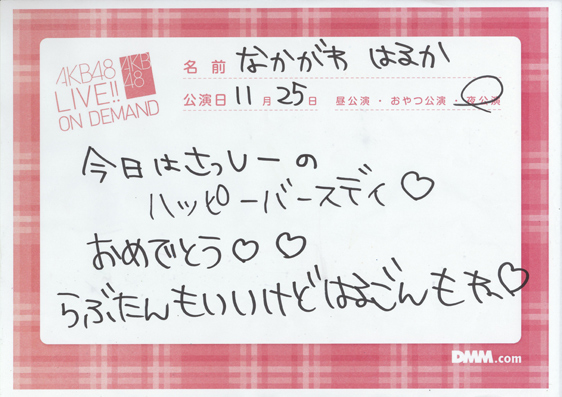 AKB48
LIVE!!
ON DEMAND
AKB
48
名前 なかがわ はるか
公演日 11月25日 昼公演・おやつ公演・夜公演
今日はさっしーの
ハッピーバースディ♡
おめでとう♡♡
らぶたんもいいけどはるごんもね♡
DMM.com